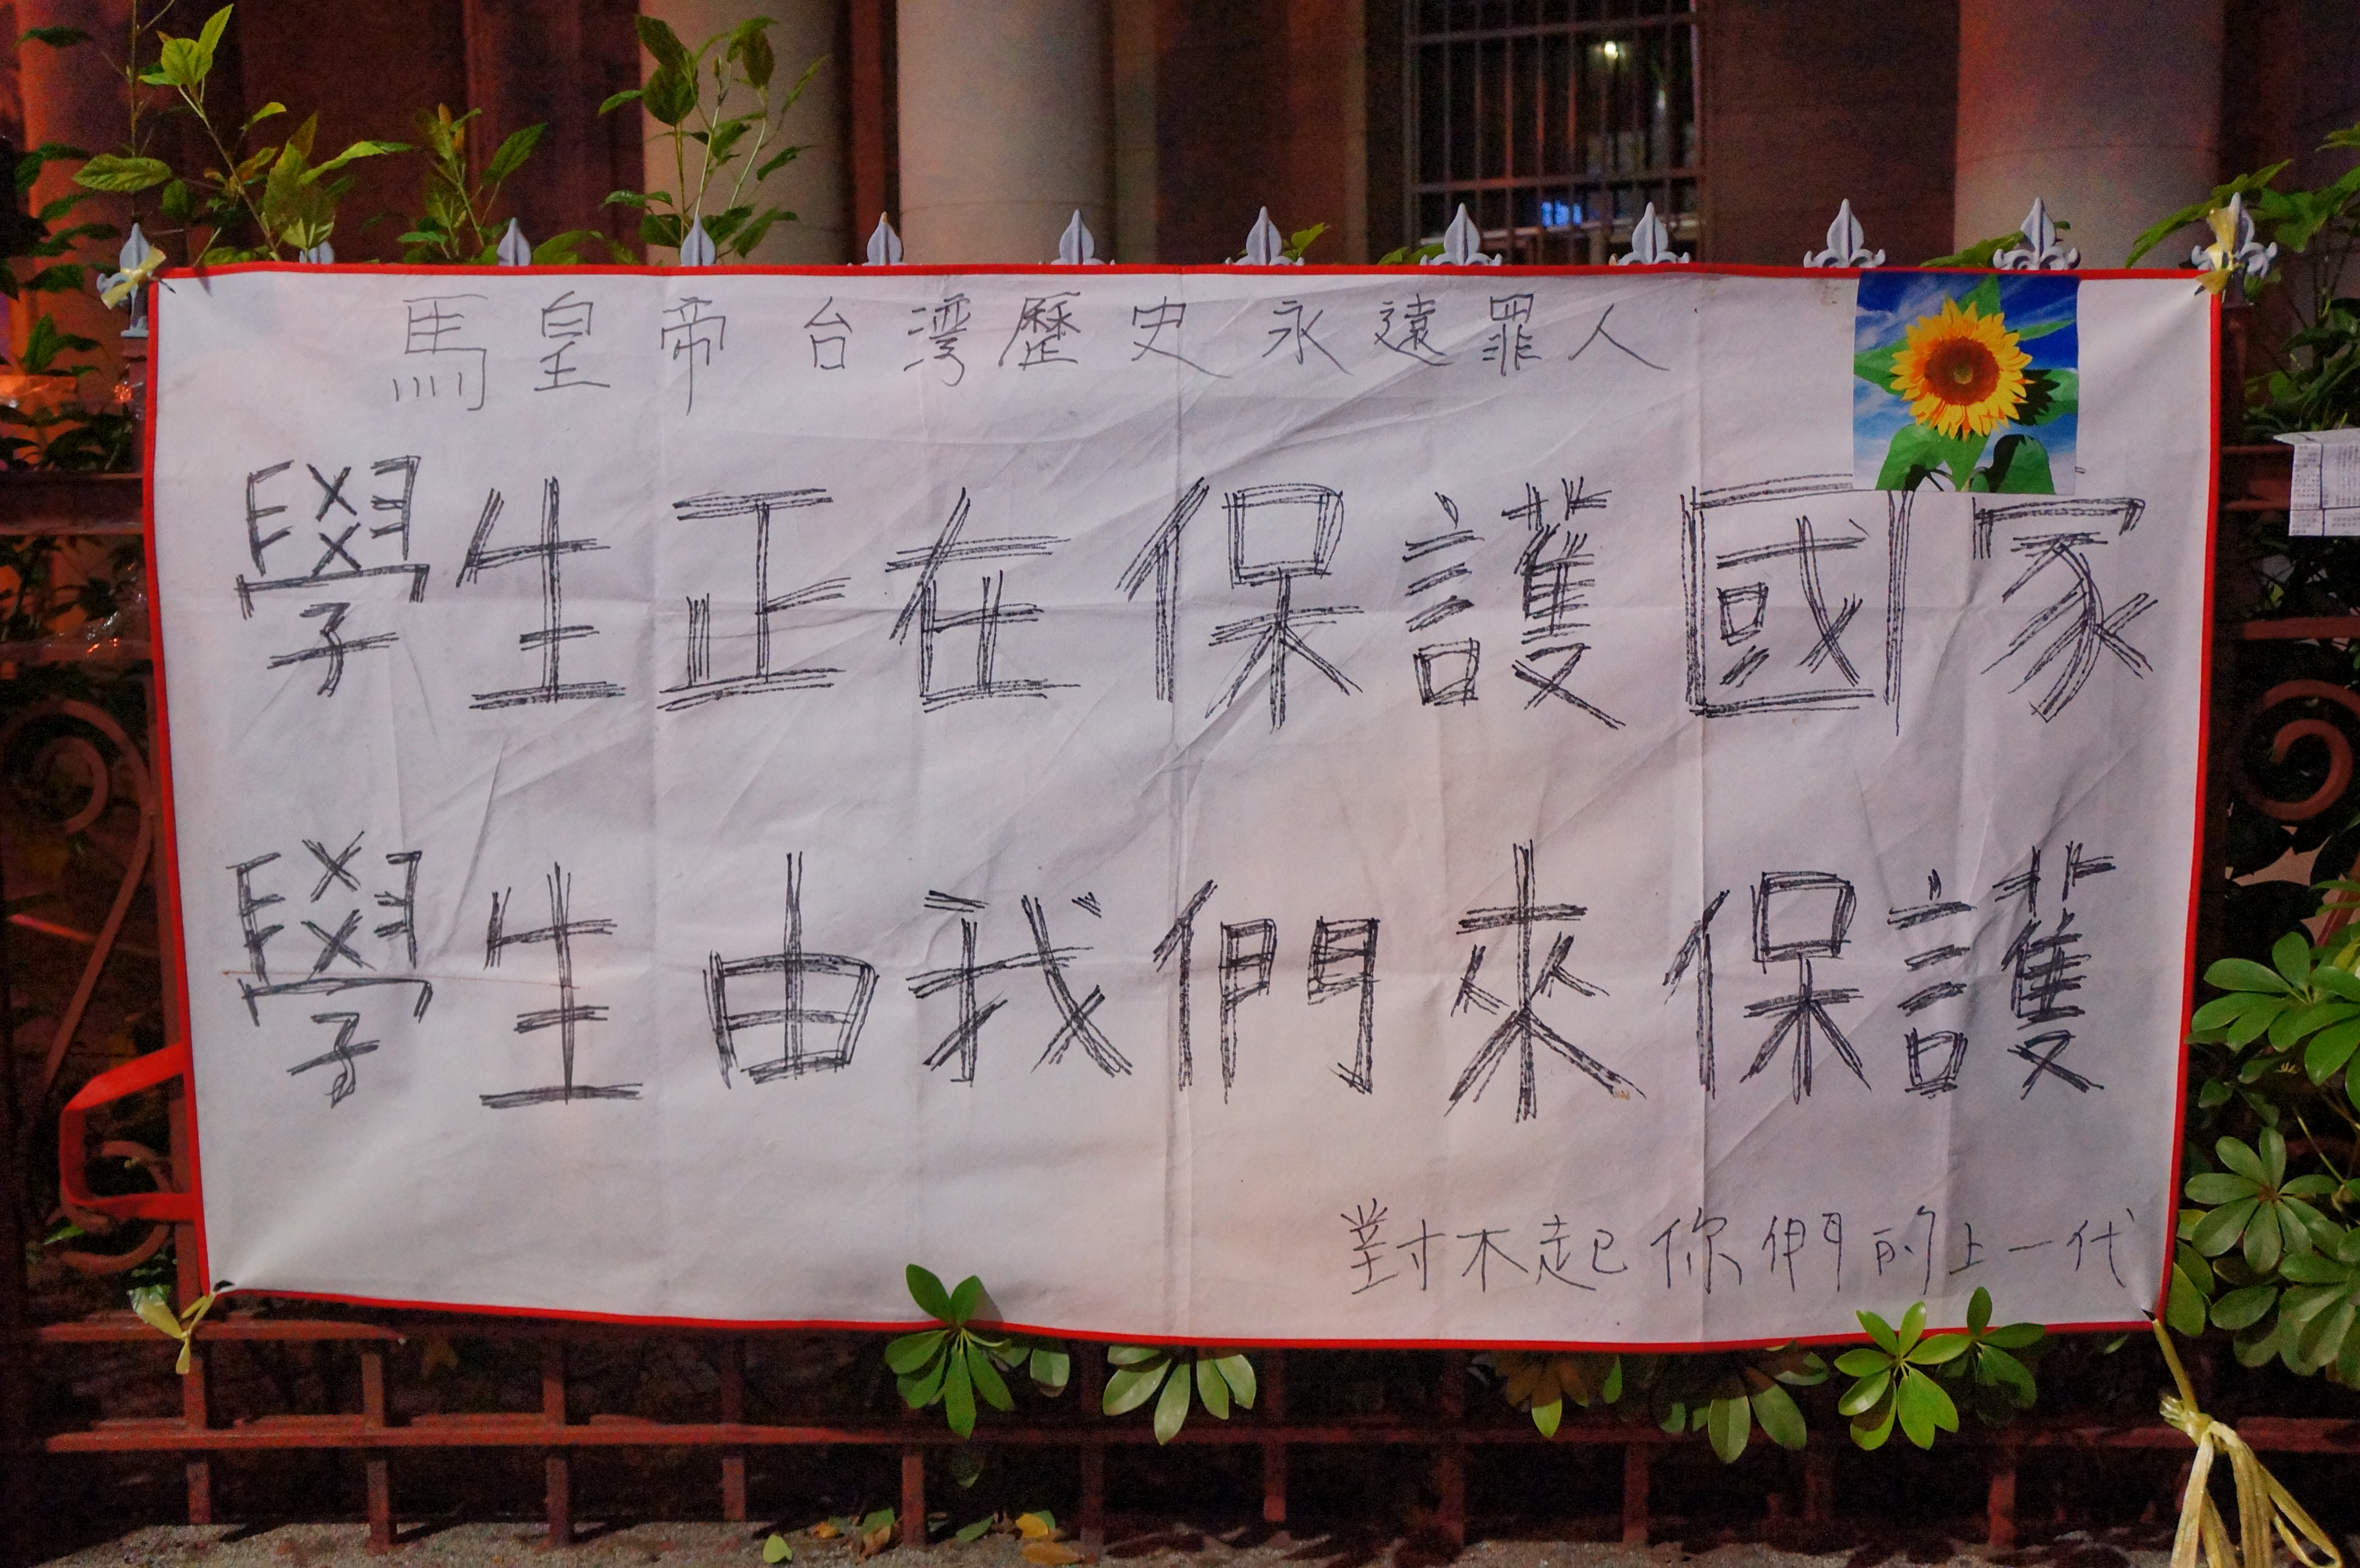 馬皇帝台湾歷史永遠罪人
學生正在保護國家
學生由我們來保護
對不起你們的上一代